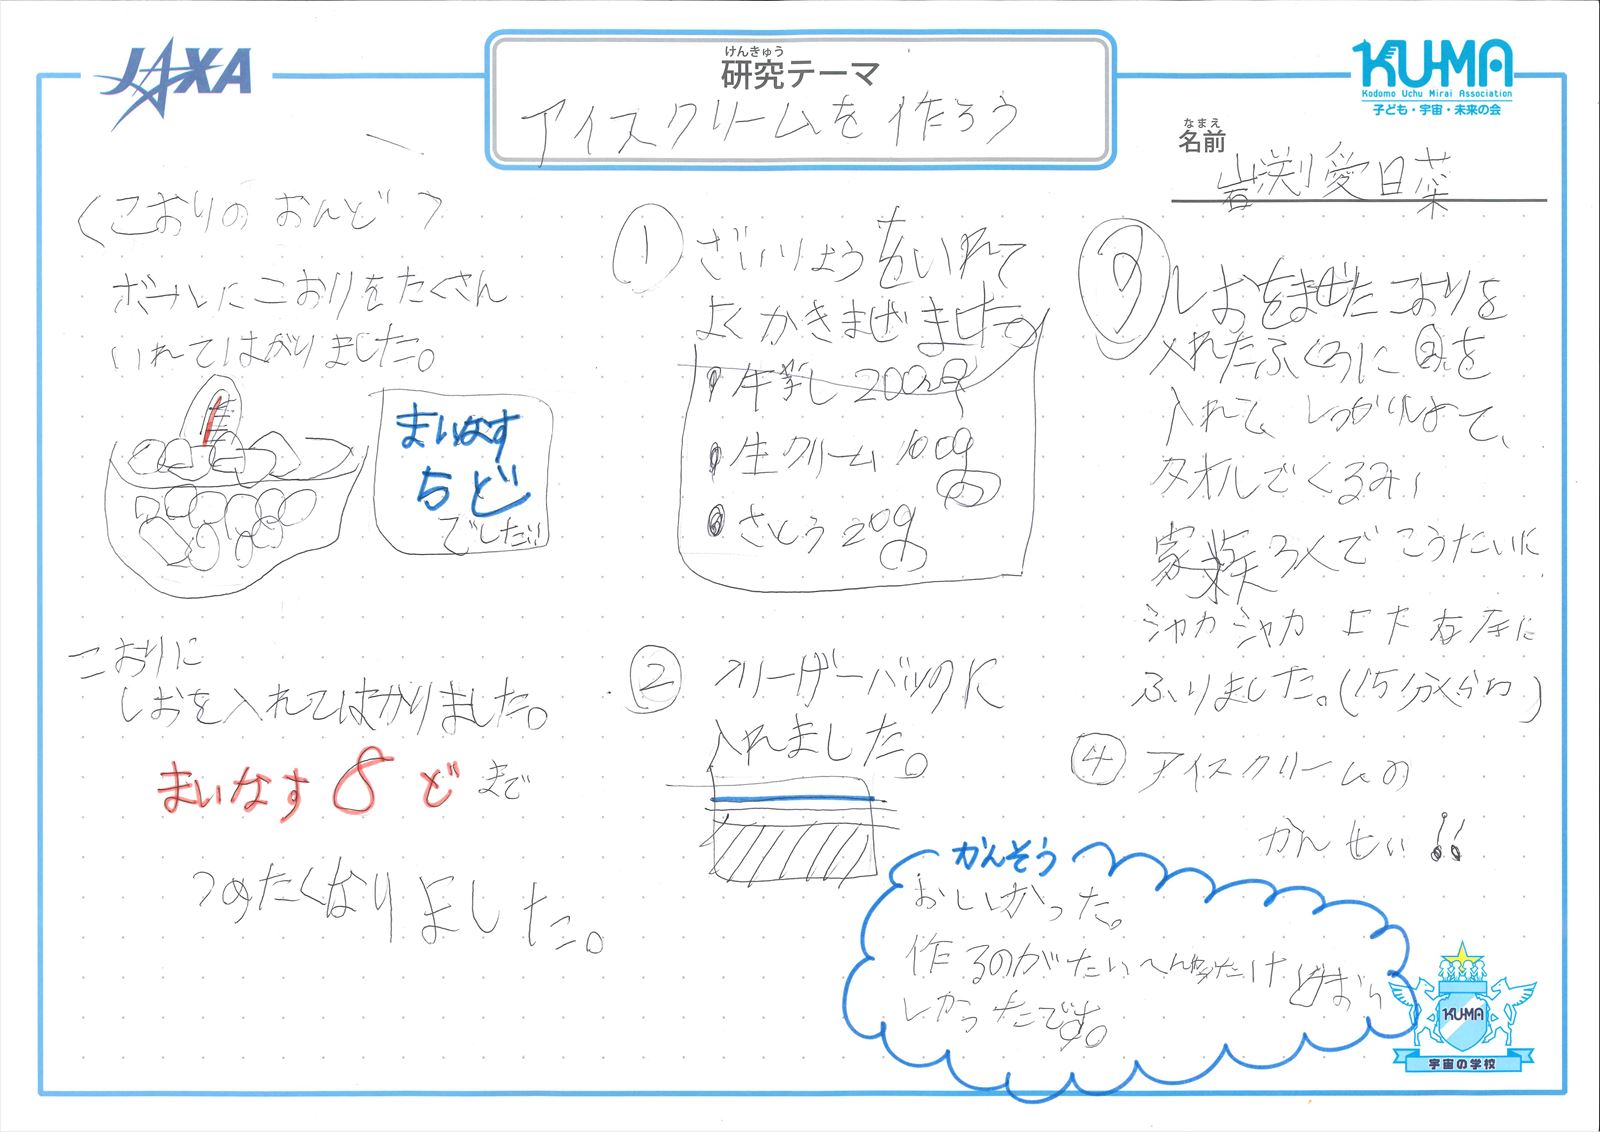 JAXA
けんきゅう
研究テーマ
アイスクリームを作ろう
KU-MA
Kodomo Uchu Mirai Association
子ども・宇宙・未来の会
なまえ
名前
岩渕愛日菜
〈こおりのおんど〉
ボールにこおりをたくさん
いれてはかりました。
まいなす
5ど
でした。
こおりに
しおを入れてはかりました。
まいなす8どまで
つめたくなりました。
① ざいりょうをいれて
よくかきまぜました。
牛乳 200g
生クリーム 100g
さとう 20g
② フリーザーバックに
入れました。
③ しおをまぜたこおりを
入れたふくろに②を
入れて、しっかりしめて、
タオルでくるみ、
家族3人でこうたいに
シャカシャカ上下右左に
ふりました。(15分くらい)
④ アイスクリームの
かんせい!!
かんそう
おいしかった。
作るのがたいへんだったけどまた
しかったです。
KU-MA
宇宙の学校